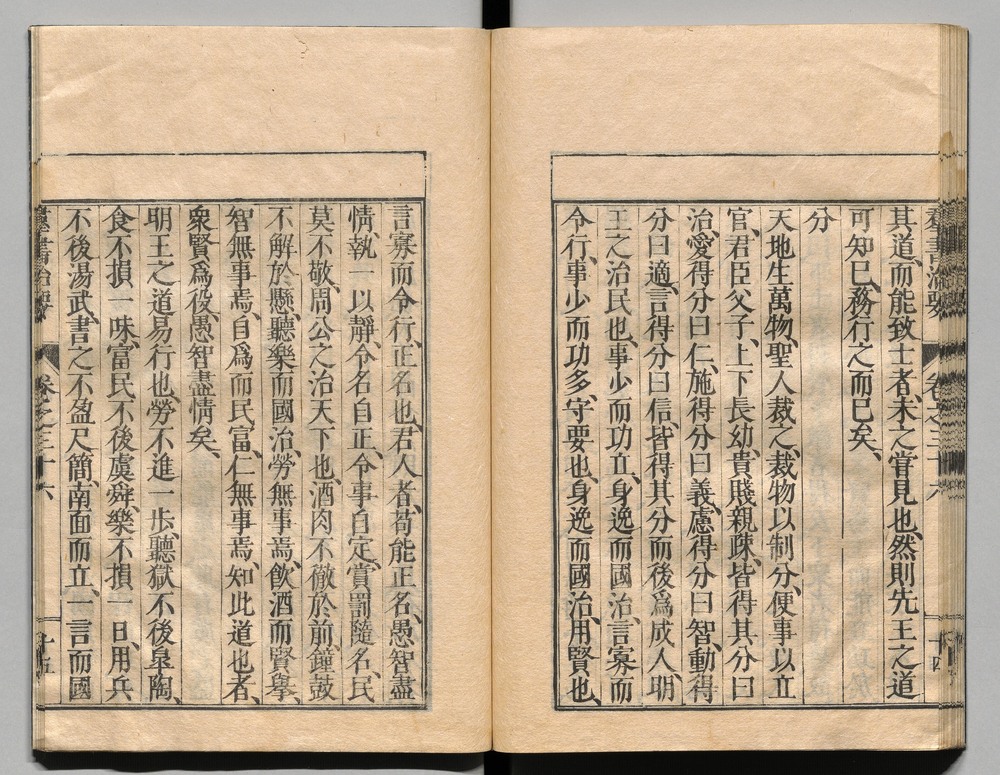 其道、而能致士者、未之嘗見也、然則先王之道
可知已、務行之而已矣、
分
天地生萬物、聖人裁之、裁物以制分、便事以立
官、君臣父子、上下長幼、貴賤親疎、皆得其分曰
治、愛得分曰仁、施得分曰義、慮得分曰智、動得
分曰適、言得分曰信、皆得其分而後爲成人、明
王之治民也、事少而功立、身逸而國治、言寡而
令行、事少而功多、守要也、身逸而國治、用賢也、
言寡而令行、正名也、君人者、苟能正名、愚智盡
情、執一以靜、令名自正、令事自定、賞罰隨名、民
莫不敬、周公之治天下也、酒肉不徹於前、鐘鼓
不解於懸、聽樂而國治、勞無事焉、飲酒而賢擧、
智無事焉、自爲而民富、仁無事焉、知此道也者、
衆賢爲役、愚智盡情矣、
明王之道易行也、勞不進一歩、聽獄不後皐陶、
食不損一味、富民不後虞舜、樂不損一日、用兵
不後湯武、書之不盈尺簡、南面而立、一言而國
羣書治要 卷之三十六 十四
羣書治要 卷之三十六 十五